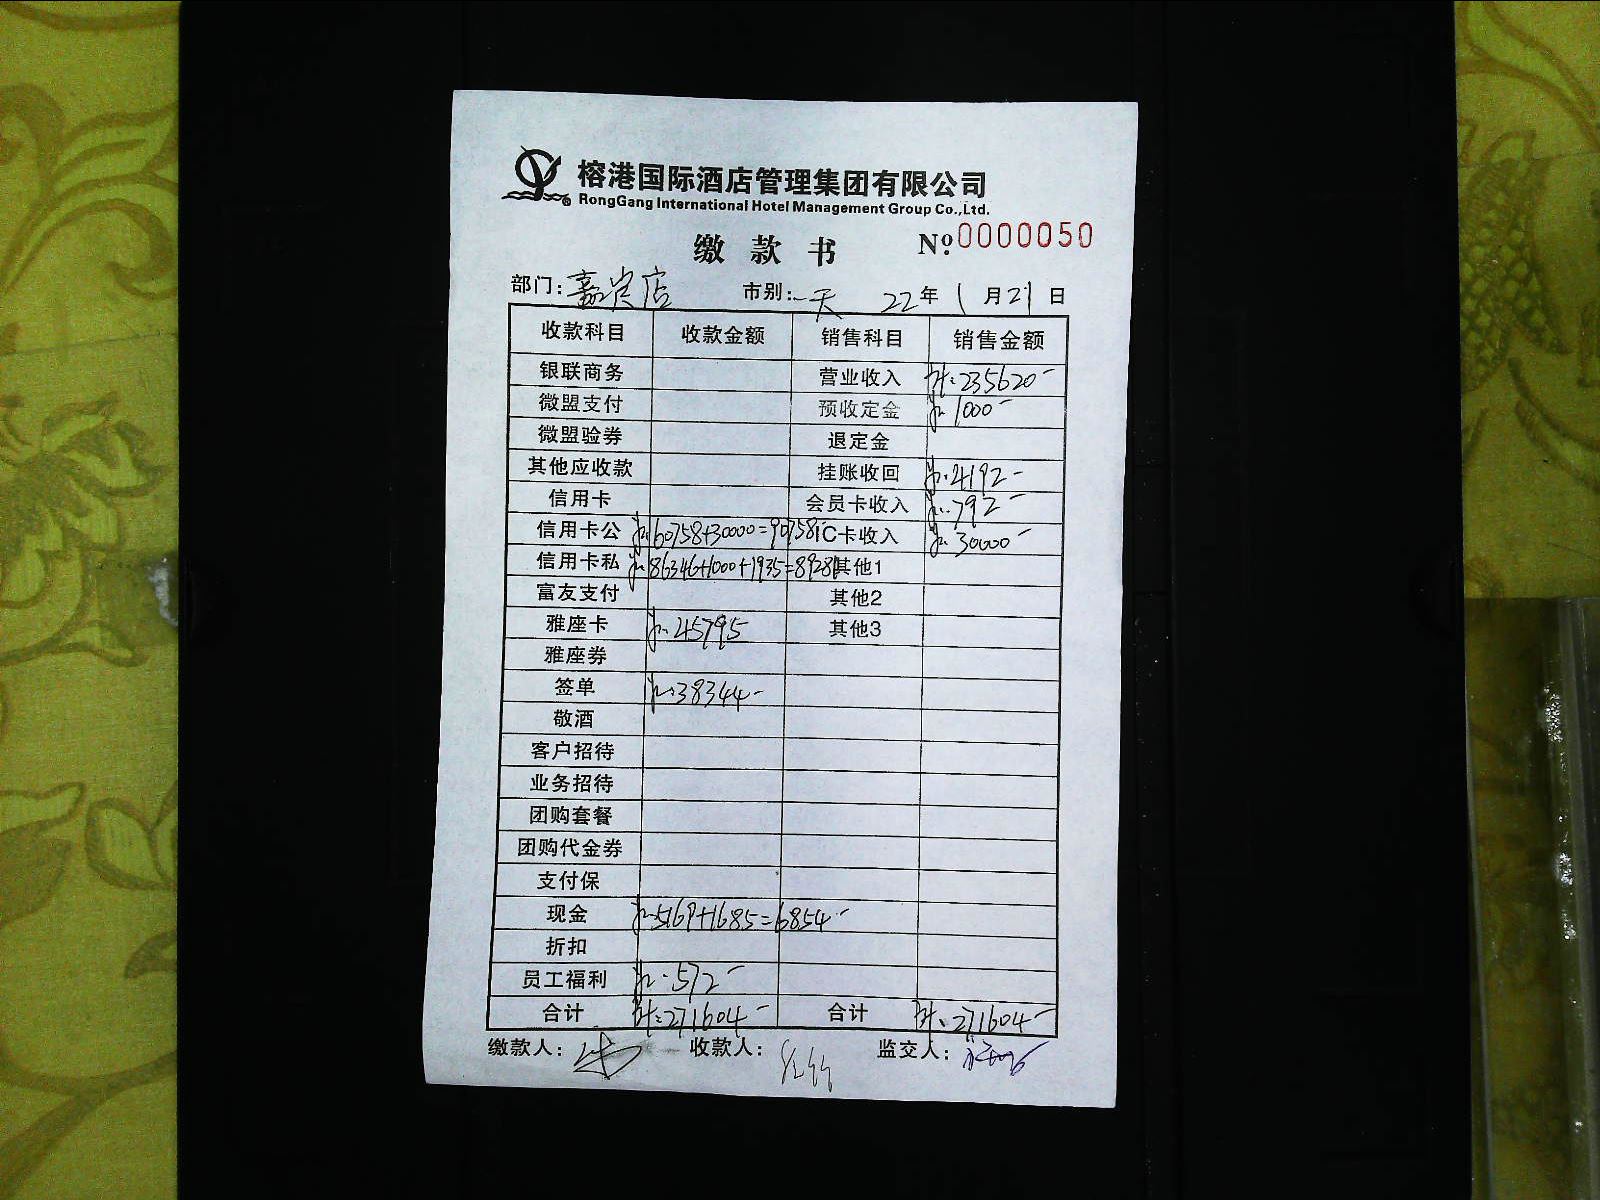 榕港国际酒店管理集团有限公司
RongGang International Hotel Management Group Co.,Ltd.
缴款书 №:0000050
部门:嘉宾店 市别:一天 22年1月21日
收款科目 收款金额 销售科目 销售金额
银联商务 营业收入 计:235620-
微盟支付 预收定金 1000-
微盟验券 退定金
其他应收款 挂账收回 4192-
信用卡 会员卡收入 792-
信用卡公 60758+30000=90758- IC卡收入 30000-
信用卡私 86346+1000+1935=89281 其他1
富友支付 其他2
雅座卡 45795 其他3
雅座券
签单 38344-
敬酒
客户招待
业务招待
团购套餐
团购代金券
支付保
现金 5169+1685=6854-
折扣
员工福利 572-
合计 计:271604- 合计 计:271604-
缴款人: 收款人: 监交人: